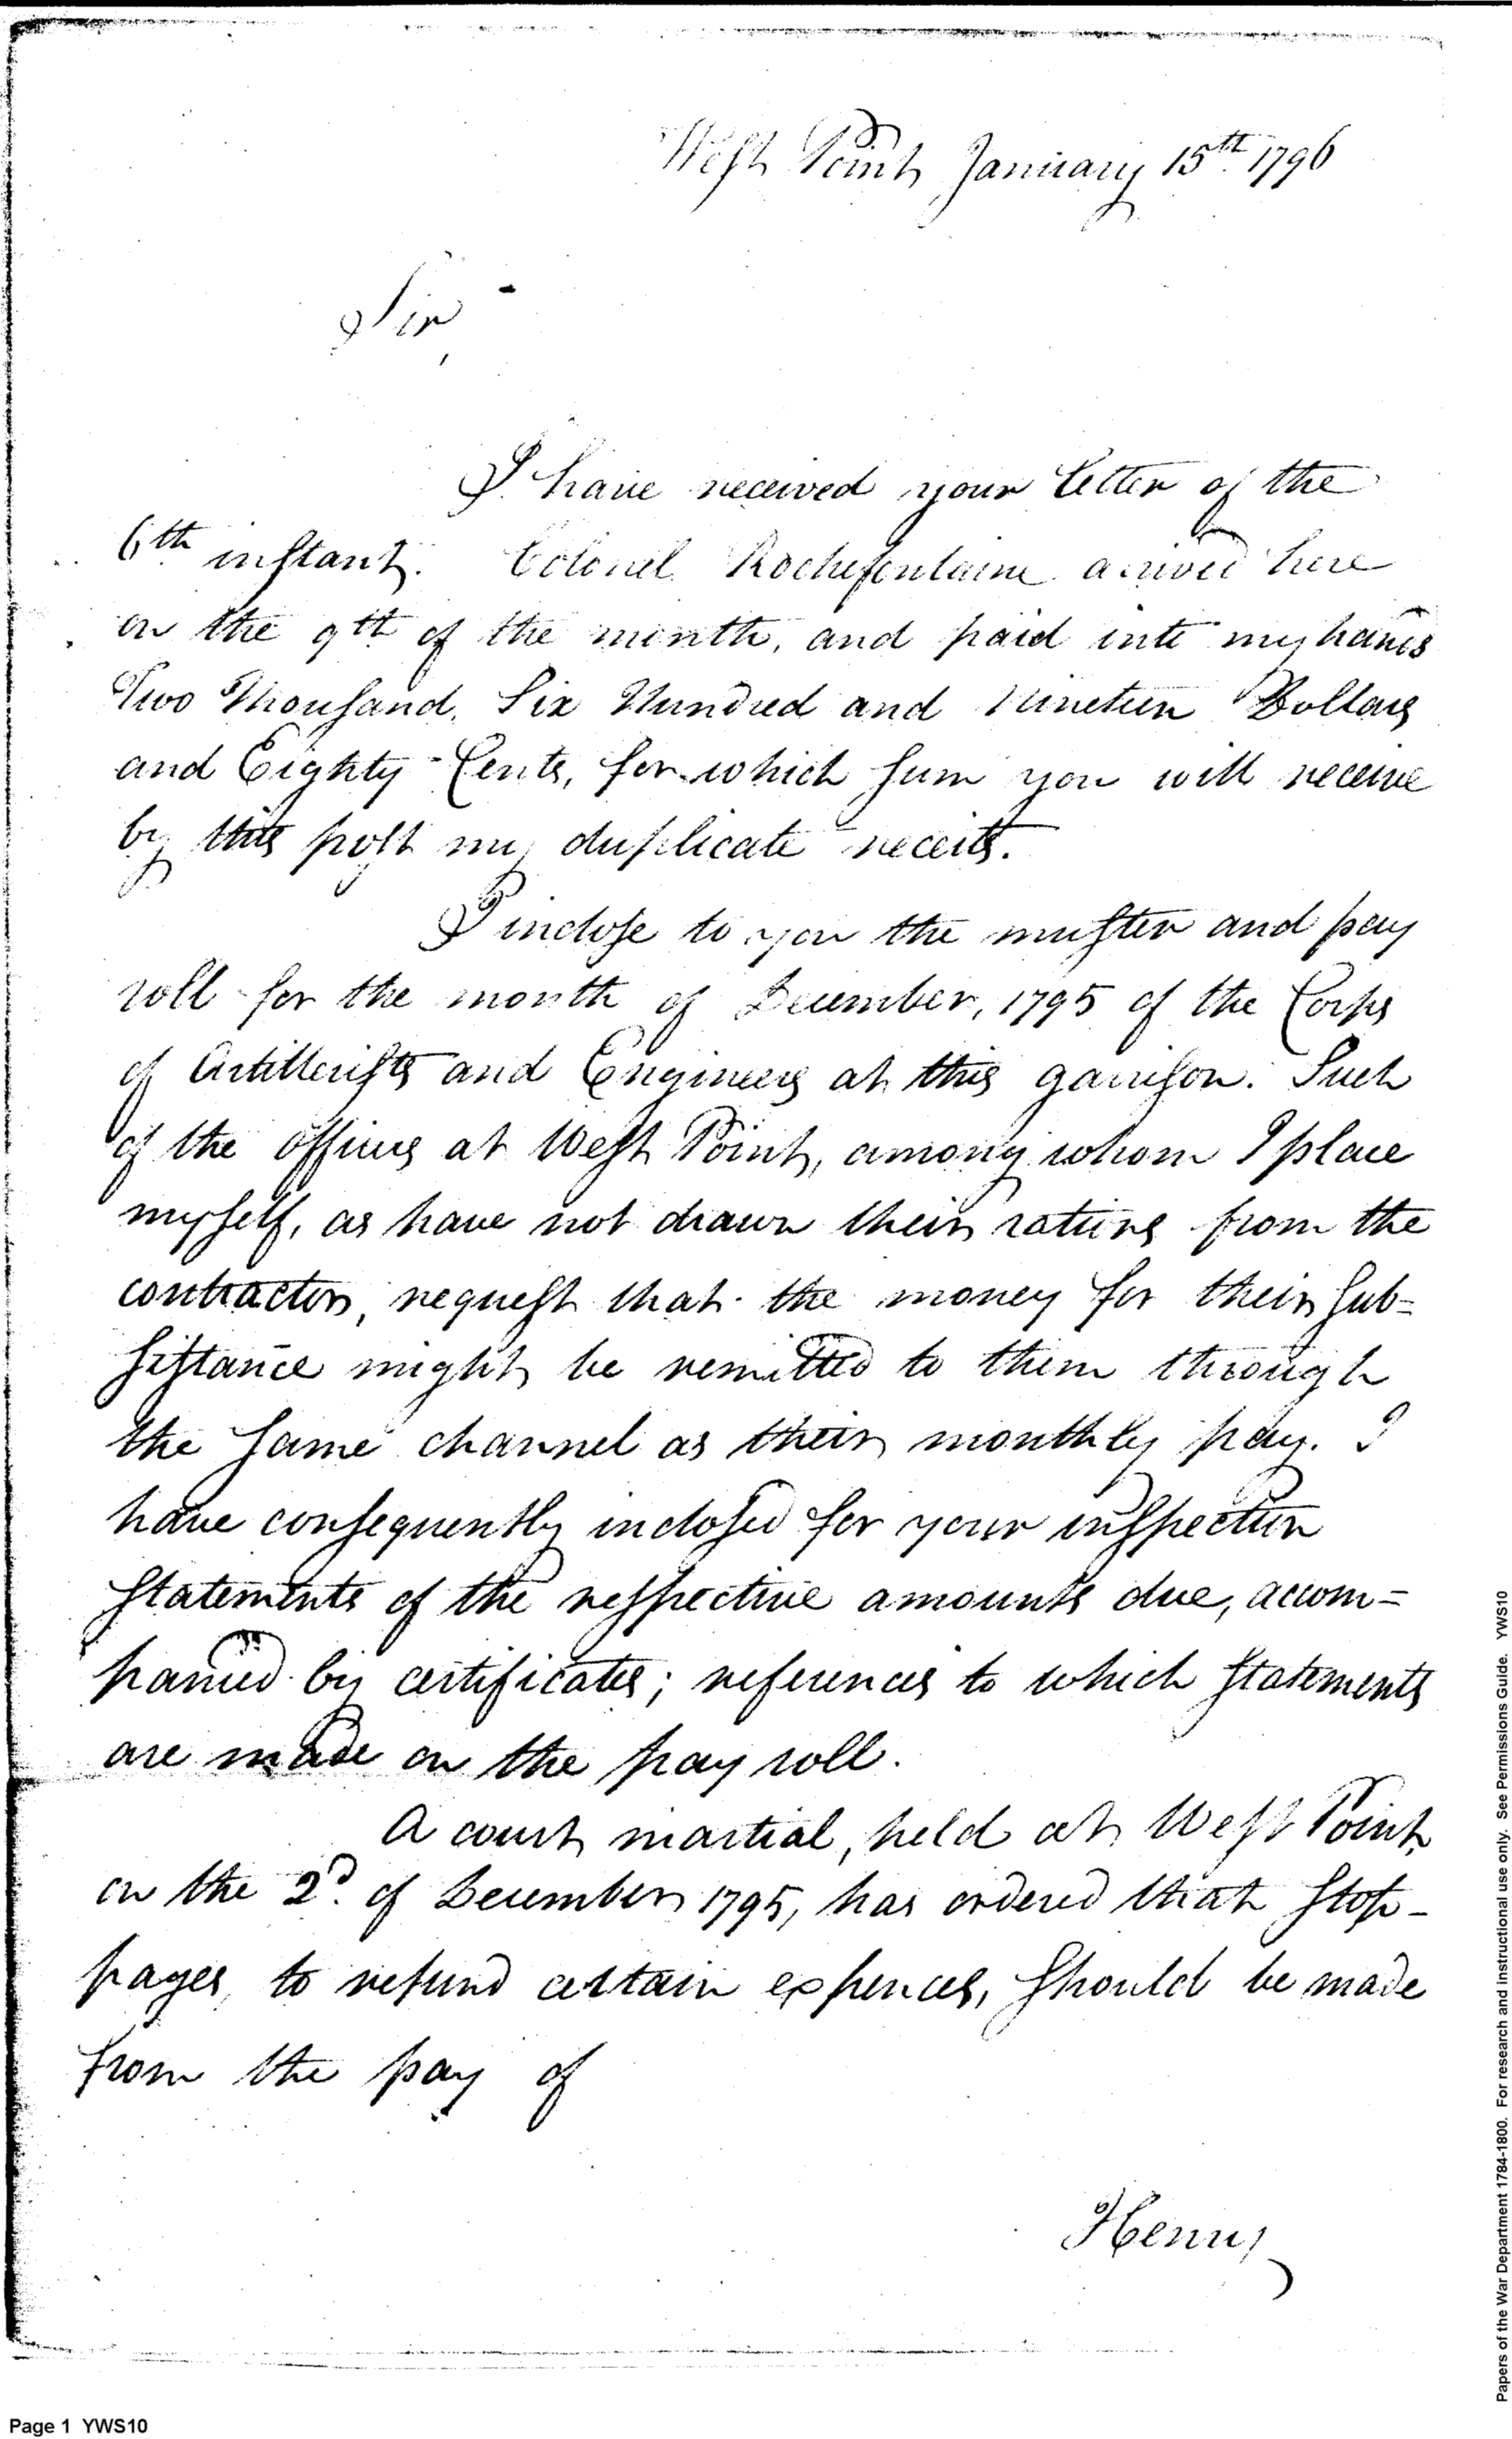 West Point January 15th 1796
Sir,
I have received your letter of the
6th instant. Colonel Rochefontaine arrived here
on the 9th of the month, and paid into my hands
Two Thousand, Six Hundred and Nineteen Dollars
and Eighty Cents, for which sum you will receive
by this post my duplicate receits.
I inclose to you the muster and pay
roll for the month of December, 1795 of the Corps
of Artillerists and Engineers at this garrison. Such
of the officers at West Point, among whom I place
myself, as have not drawn their rations from the
contractor, request that the money for their sub=
sistance might be remitted to them through
the same channel as their monthly pay. I
have consequently inclosed for your inspection
statements of the respective amounts due, accom=
panied by certificates; references to which statements
are made on the pay roll.
A court martial, held at West Point,
on the 2d. of December 1795, has ordered that stop-
pages, to refund certain expences, should be made
from the pay of
Henry
Page 1 YWS10
Papers of the War Department 1784-1800. For research and instructional use only. See Permissions Guide. YWS10